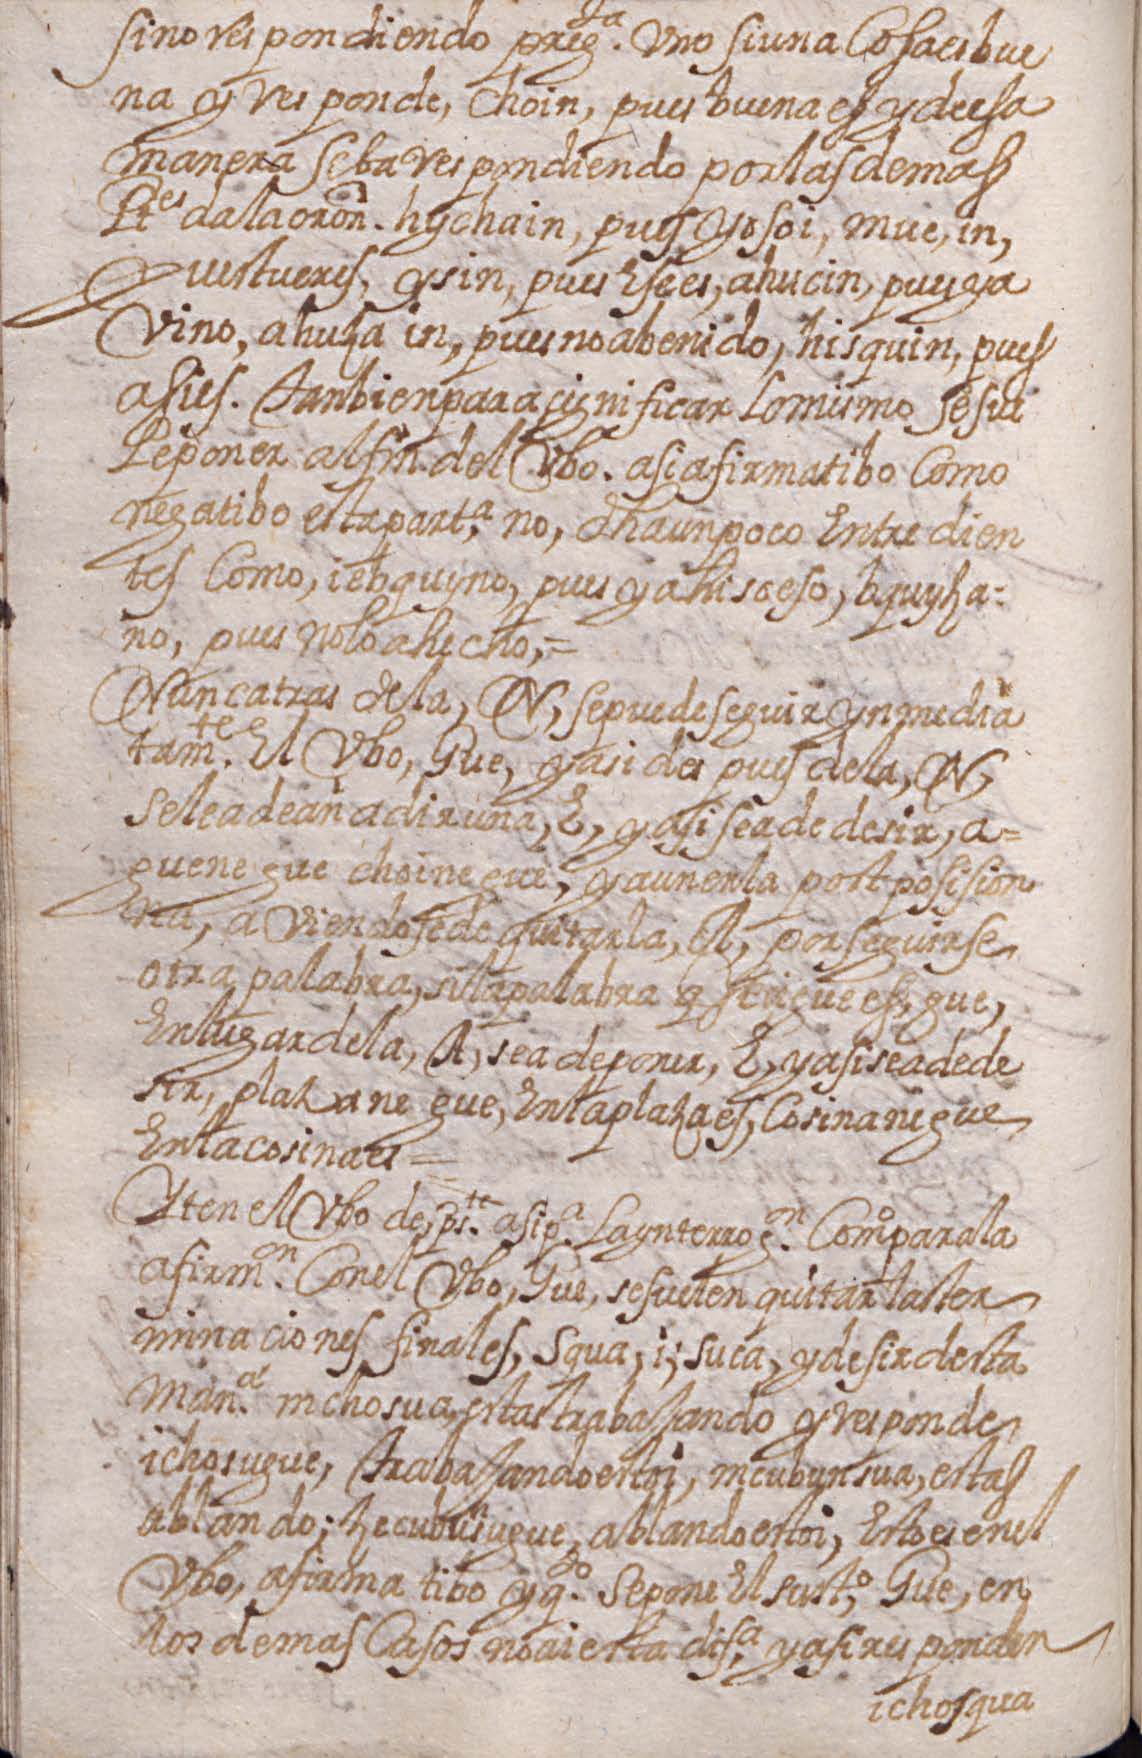 sino respondiendo preg.ta Vno siuna Cosaesbue
na y responde, choin, pues buena es ydeesa
manera seba respondiendo porlas demas
Ptes dalaoron. hychain, pues yosoi, mue, in,
puestueres, ysin, pues Esees, ahucin, puesya
Vino, ahuza in, puesnoabenido, hisquin, pues
asies. tanbienparasignificar Lomismo sesue
Leponer alfin del Vbo. asiafirmatibo Como
negatibo estapart.a no, dhaunpoco Entre dien
tes Como, iebquyno, pues yahisoeso, bquyza=
no, pues noloahecho,=
Nuncatras dela, N, sepuedeseguir ynmedia
tam.te El Vbo, Gue, yasi des pues dela, N,
seleadeañadiruna, E, yasiseade desir, a=
guenegue choinegue, yaunenla postposision
na, aviendosede quitarla, A, porseguirse
otra palabra, silapalabra q sesigue es, gue,
Enlugardela, A, seadeponer, E, yasiseadede
sir, plazanegue, Enlaplazaes, Cosinanegue
Enlacosinaes=
Yten el Vbo de ps.te asip.a Laynterrog.on Como parala
afirm.on Conel Vbo, Gue, sesuelen quitar laster
minaciones finales, squa, i, suca, ydesirdesta
Man.a mchosua, estas trabajando yresponde
ichosugue, trabajandoestoi, mcubunsua, estas
ablando; zecubunsugue, ablandoestoi, Estoesenel
Vbo, afirmatibo yq.do Sepone El sust.o Gue, en
los demas Casos noaiesta dis.a yasiresponden
ichosqua